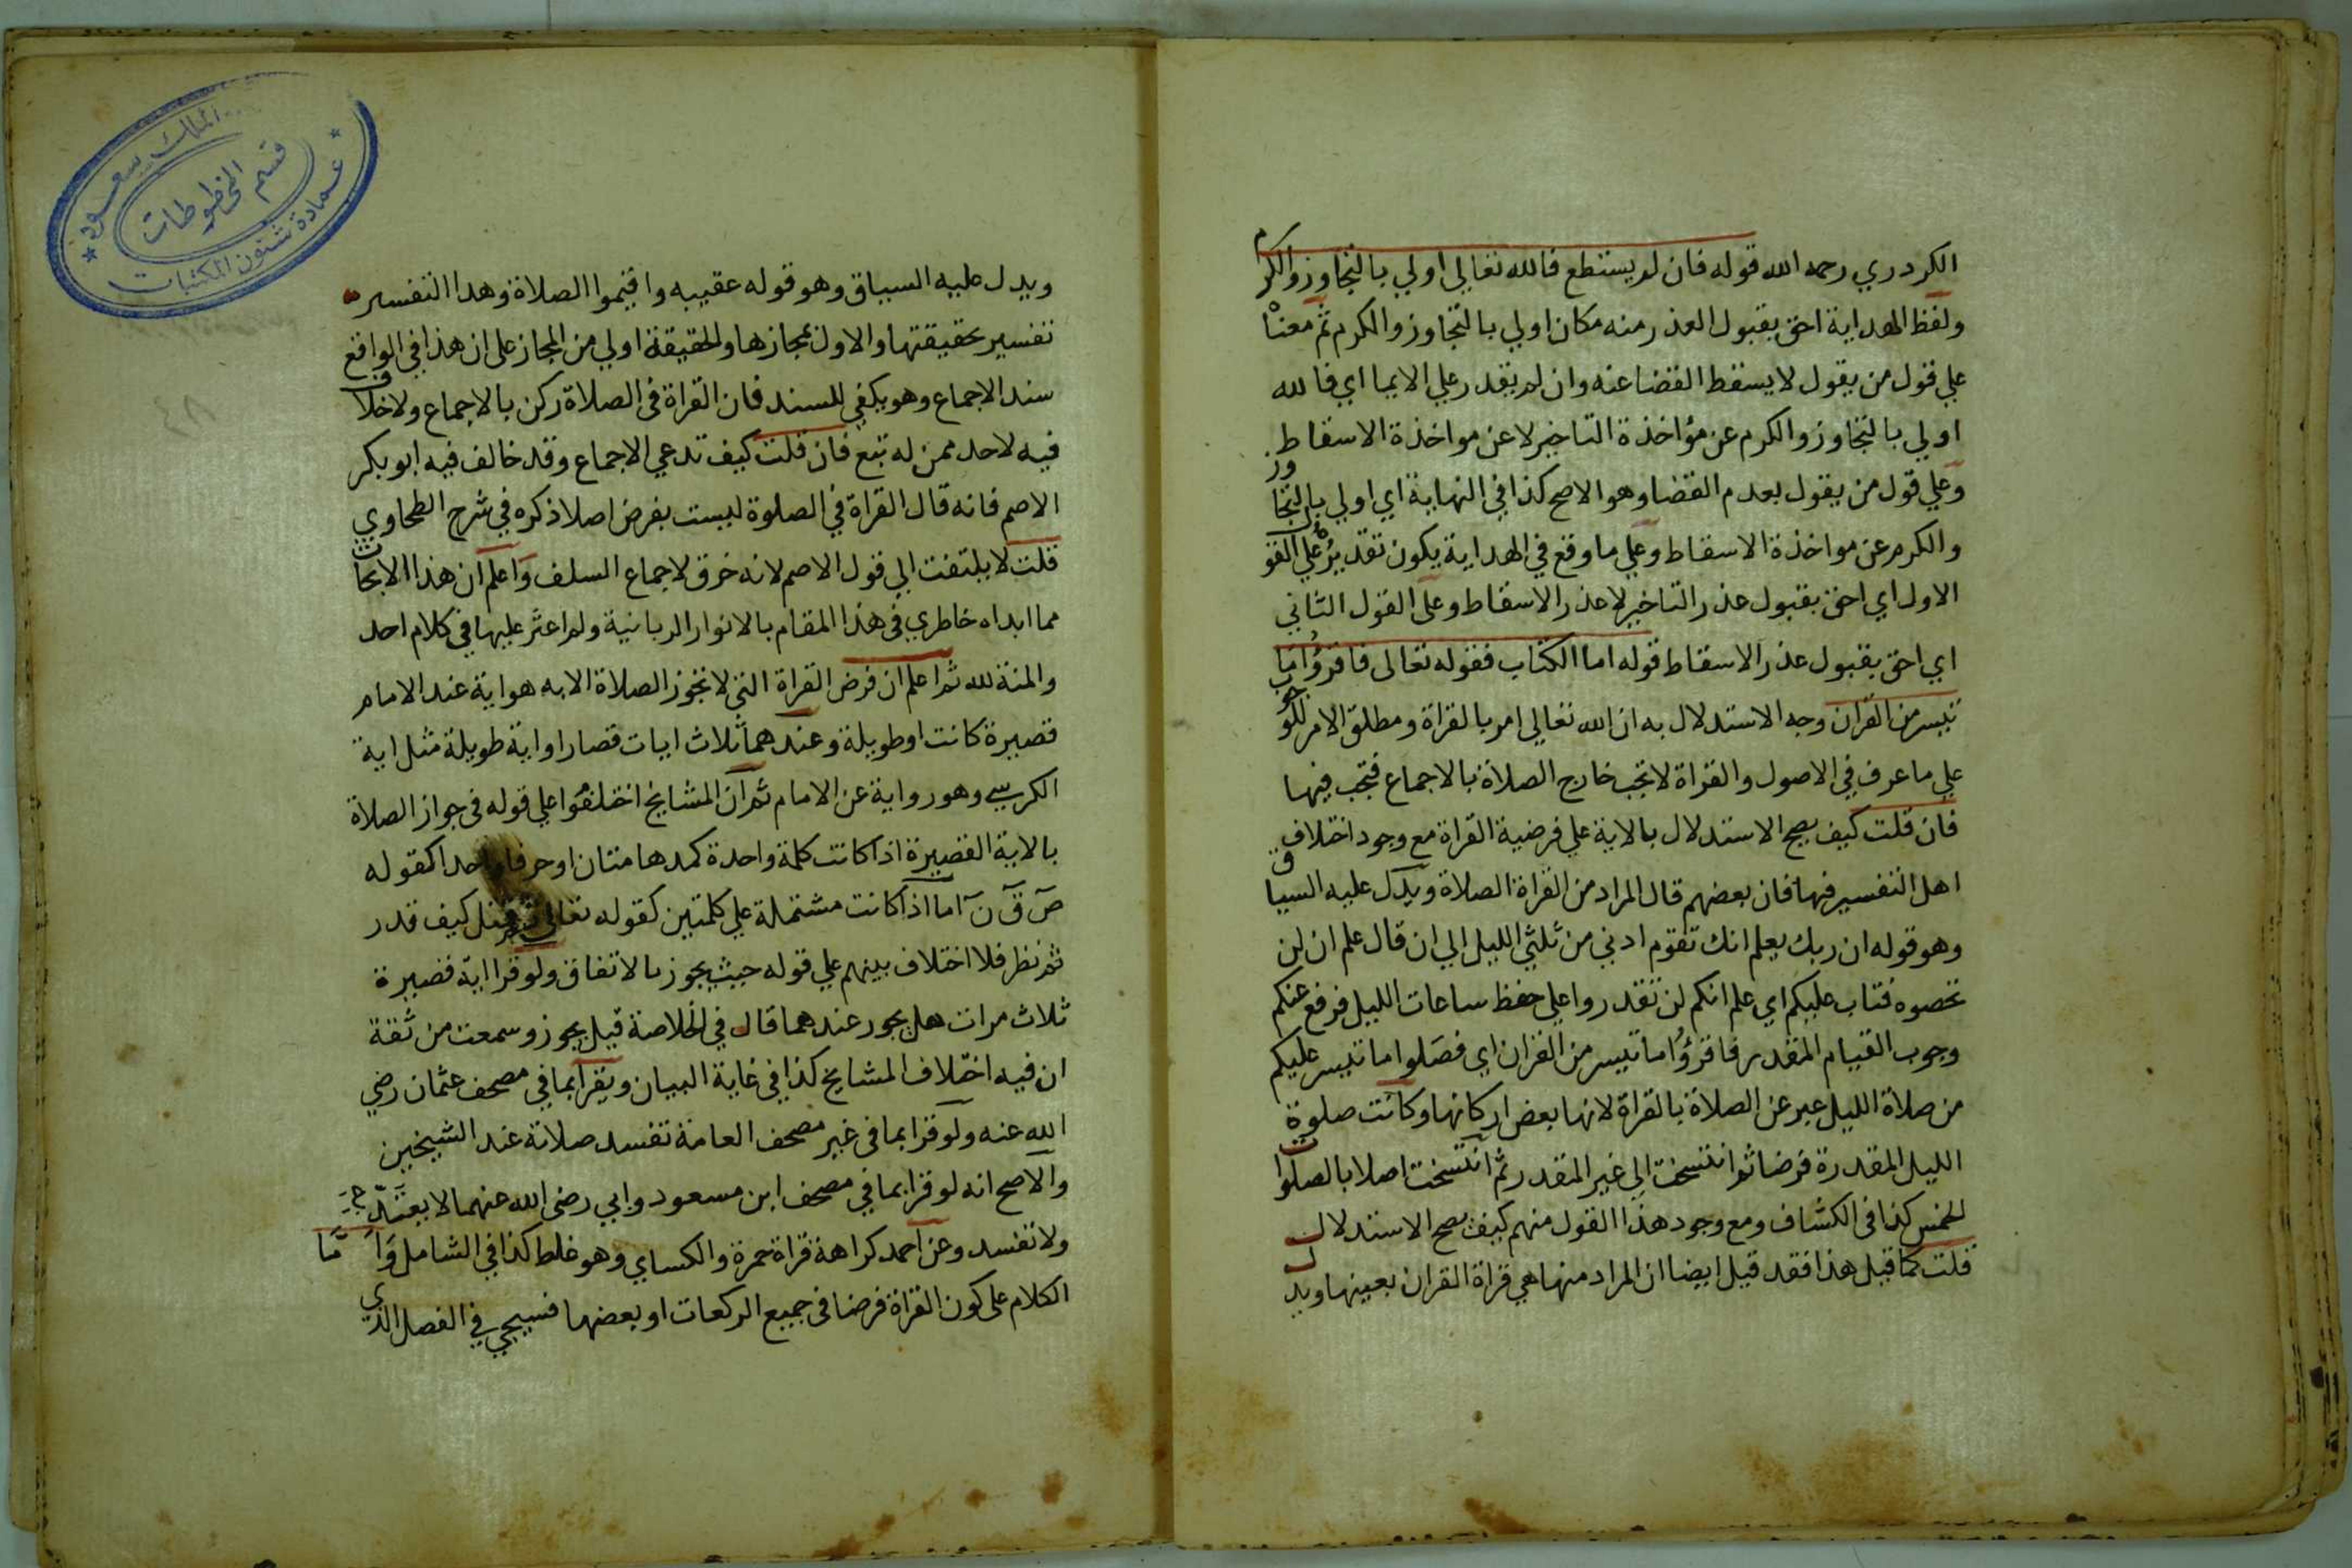 الكردري رحمه الله قوله فان لم يستطع فالله تعالي اولي بالتجاوز والكرم
ولفظ الهداية احق بقبول العذر منه مكان اولي بالتجاوز والكرم ثم معناه
علي قول من يقول لا يسقط القضا عنه وان لم يقدر علي الايما اي فالله
اولي بالتجاوز والكرم عن مؤاخذة التاخير لا عن مواخذة الاسقاط
وعلي قول من يقول بعدم القضا وهو الاصح كذا في النهاية اي اولي بالتجاوز
والكرم عن مواخذة الاسقاط وعلي ما وقع في الهداية يكون تقديره علي القول
الاول اي احق بقبول عذر التاخير لا عذر الاسقاط وعلى القول الثاني
اي احق بقبول عذر الاسقاط قوله اما الكتاب فقوله تعالى فاقرؤا ما
تيسر من القران وجه الاستدلال به ان الله تعالي امر بالقراة ومطلق الامر للوجوب
علي ما عرف في الاصول والقراة لا تجب خارج الصلاة بالاجماع فتجب فيها
فان قلت كيف يصح الاستدلال بالاية علي فرضية القراة مع وجود اختلاف
اهل التفسير فيها فان بعضهم قال المراد من القراة الصلاة ويدل عليه السياق
وهو قوله ان ربك يعلم انك تقوم ادني من ثلثي الليل الي ان قال علم ان لن
تحصوه فتاب عليكم اي علم انكم لن تقدروا علي حفظ ساعات الليل فرفع عنكم
وجوب القيام المقدر فاقرؤا ما تيسر من القران اي فصلوا ما تيسر عليكم
من صلاة الليل عبر عن الصلاة بالقراة لانها بعض اركانها وكانت صلوة
الليل المقدرة فرضا ثم انتسخت الي غير المقدر ثم انتسخت اصلا بالصلوات
الخمس كذا في الكشاف ومع وجود هذا القول منهم كيف يصح الاستدلال
قلت كما قيل هذا فقد قيل ايضا ان المراد منها هي قراة القران بعينها ويدل
ويدل عليه السياق وهو قوله عقيبه واقيموا الصلاة وهذا التفسير
تفسير بحقيقتها والاول بمجازها والحقيقة اولي من المجاز على ان هذا في الواقع
سند الاجماع وهو يكفي للسند فان القراة في الصلاة ركن بالاجماع ولا خلاف
فيه لاحد ممن له تبع فان قلت كيف تدعي الاجماع وقد خالف فيه ابو بكر
الاصم فانه قال القراة في الصلوة ليست بفرض اصلا ذكره في شرح الطحاوي
قلت لا يلتفت الي قول الاصم لانه خرق لاجماع السلف واعلم ان هذا الابحاث
مما ابداه خاطري في هذا المقام بالانوار الربانية ولم اعثر عليها في كلام احد
والمنة لله ثم اعلم ان فرض القراة التي لا تجوز الصلاة الا به هو اية عند الامام
قصيرة كانت او طويلة وعندهما ثلاث ايات قصار او اية طويلة مثل اية
الكرسي وهو رواية عن الامام ثم ان المشايخ اختلفوا علي قوله في جواز الصلاة
بالاية القصيرة اذا كانت كلمة واحدة كمدهامتان او حرفا واحدا كقوله
ص ق ن اما اذا كانت مشتملة علي كلمتين كقوله تعالي فقتل كيف قدر
ثم نظر فلا اختلاف بينهم علي قوله حيث يجوز بالاتفاق ولو قرا اية قصيرة
ثلاث مرات هل يجوز عندهما قال في الخلاصة قيل يجوز وسمعت من ثقة
ان فيه اختلاف المشايخ كذا في غاية البيان ويقرا بما في مصحف عثمان رضي
الله عنه ولو قرا بما في غير مصحف العامة تفسد صلاتة عند الشيخين
والاصح انه لو قرا بما في مصحف ابن مسعود وابي رضي الله عنهما لا يعتد به
ولا تفسد وعن احمد كراهة قراة حمزة والكساي وهو غلط كذا في الشامل واما
الكلام على كون القراة فرضا في جميع الركعات او بعضها فسيجي في الفصل الذي
الملك سعود
قسم المخطوطات
عمادة شئون المكتبات